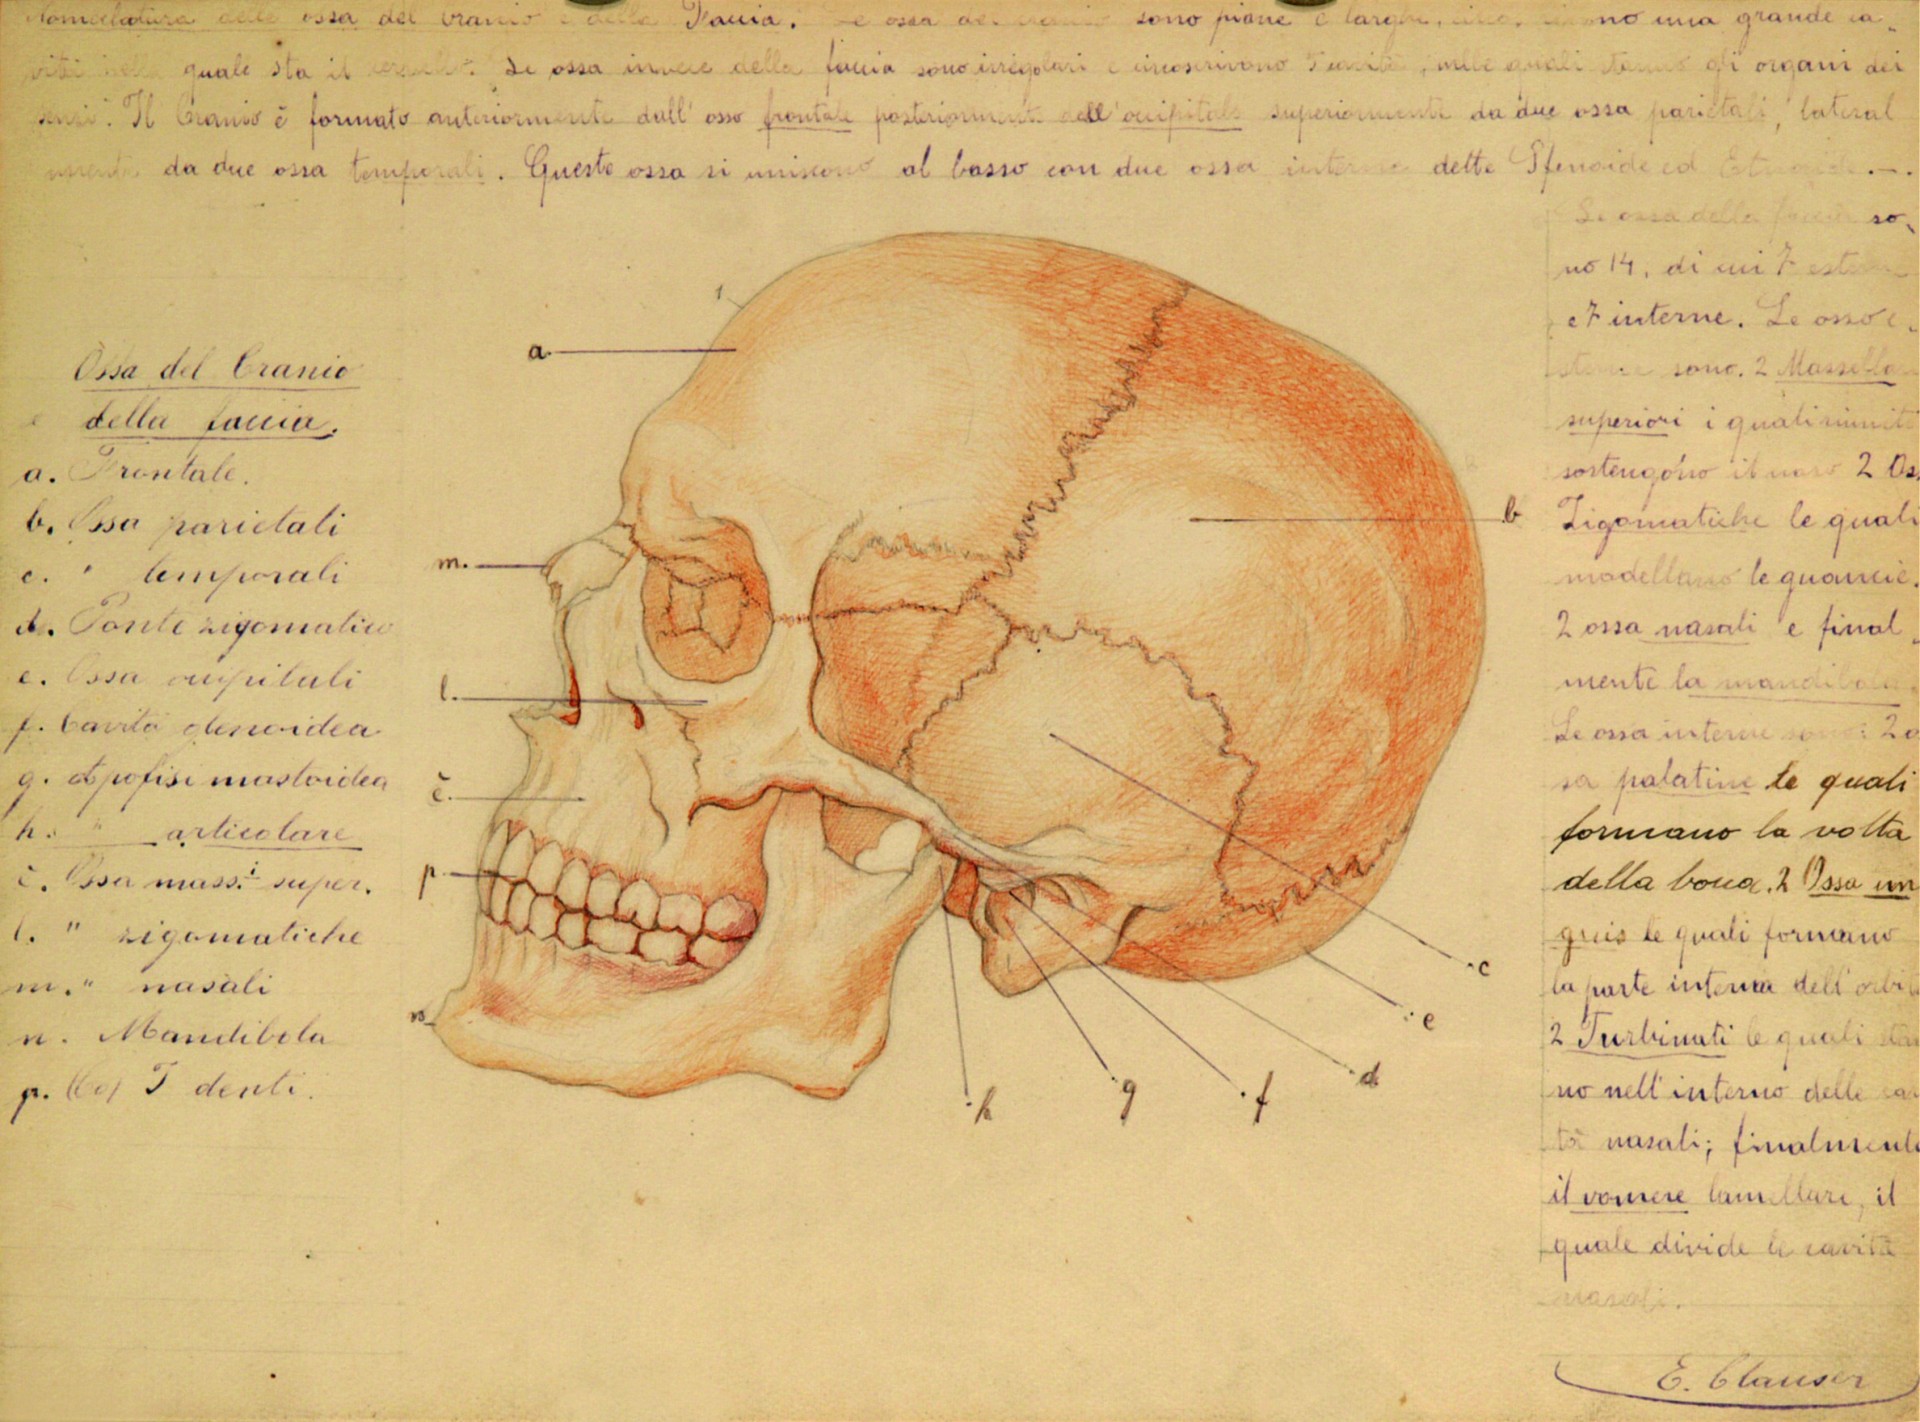 Nomenclatura delle ossa del Cranio e della Faccia. Le ossa del cranio sono piane e larghe, no una grande ca-
vità nella quale sta il Le ossa invece della faccia sono irregolari e circoscrivono cavità, nelle quali stanno gli organi dei
sensi. Il Cranio è formato anteriormente dall' osso frontale posteriormente dall' occipitale superiormente da due ossa parietali, lateral
mente da due ossa temporali. Queste ossa si uniscono al basso con due ossa interne dette Sfenoide ed Etmoide.-.
Ossa del Cranio
e della faccia.
a. Frontale.
b. Ossa parietali
c. " temporali
d. Ponte zigomatico
e. Ossa occipitali
f. Cavità glenoidea
g. Apofisi mastoidea
h. " articolare
i. Ossa mass.i super.
l. " zigomatiche
m. " nasali
n. Mandibola
p. denti.
a
b
m.
l.
i.
p
n
c
e
d
f
g
h
Le ossa della faccia so-
no 14, di cui 7 esterne
e 7 interne. Le ossa e-
sterne sono. 2 Massella
superiori i quali riuniti
sostengono il naso 2 Os
Zigomatiche le quali
modellano le guancie.
2 ossa nasali e final-
mente la mandibola.
Le ossa interne sono: 2 o
sa palatine le quali
formano la volta
della bocca. 2 Ossa un
guis le quali formano
la parte interna dell' orbit
2 Turbinati le quali stan
no nell' interno delle cav
tà nasali; finalmente
il vomere lamellare, il
quale divide le cavità
nasali.
E. Clauser